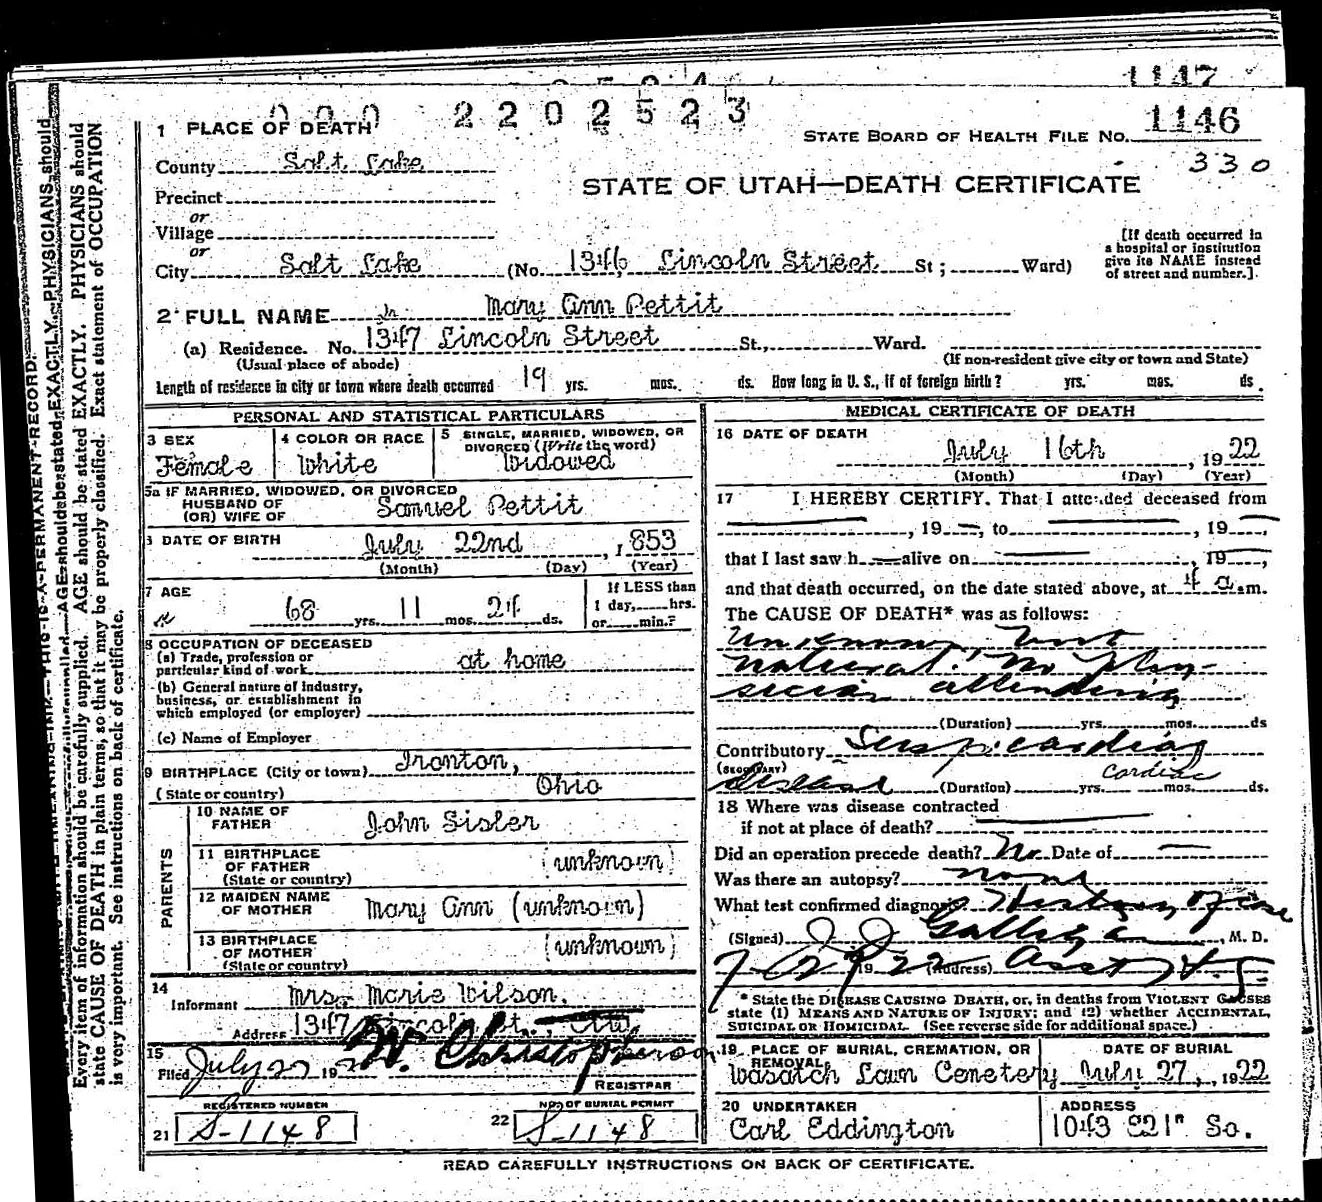 1147
000 2202523
1146
1 PLACE OF DEATH
STATE BOARD OF HEALTH FILE No. 1146
330
County Salt Lake
STATE OF UTAH—DEATH CERTIFICATE
Precinct
or
Village
or
City Salt Lake (No. 1346 Lincoln Street St; Ward)
[If death occurred in
a hospital or institution
give its NAME instead
of street and number.]
2 FULL NAME Mary Ann Pettit
(a) Residence. No. 1347 Lincoln Street St., Ward.
(Usual place of abode) (If non-resident give city or town and State)
Length of residence in city or town where death occurred 19 yrs. mos. ds. How long in U. S., if of foreign birth? yrs. mos. ds.
PERSONAL AND STATISTICAL PARTICULARS
3 SEX Female
4 COLOR OR RACE White
5 SINGLE, MARRIED, WIDOWED, OR
DIVORCED (Write the word)
Widowed
5a IF MARRIED, WIDOWED, OR DIVORCED
HUSBAND OF
(OR) WIFE OF Samuel Pettit
DATE OF BIRTH July 22nd, 1853
(Month) (Day) (Year)
7 AGE 68 yrs. 11 mos. 24 ds.
If LESS than
1 day, hrs.
or min.?
8 OCCUPATION OF DECEASED
(a) Trade, profession or
particular kind of work at home
(b) General nature of Industry,
business, or establishment in
which employed (or employer)
(c) Name of Employer
9 BIRTHPLACE (City or town) Ironton,
(State or country) Ohio
PARENTS
10 NAME OF
FATHER John Sisler
11 BIRTHPLACE
OF FATHER (unknown)
(State or country)
12 MAIDEN NAME
OF MOTHER Mary Ann (unknown)
13 BIRTHPLACE
OF MOTHER (unknown)
(State or country)
14
Informant Mrs. Marie Wilson.
Address 1347 Lincoln St.,
15
Filed July 27 192 W. Christopherson
REGISTRAR
REGISTERED NUMBER
21 S-1148
NO. OF BURIAL PERMIT
22 S-1148
MEDICAL CERTIFICATE OF DEATH
16 DATE OF DEATH
July 16th, 1922
(Month) (Day) (Year)
17 I HEREBY CERTIFY, That I attended deceased from
, 19 , to , 19 ,
that I last saw h alive on , 19 ,
and that death occurred, on the date stated above, at 4 a.m.
The CAUSE OF DEATH* was as follows:
Unknown, but
natural. No phy-
sician attending
(Duration) yrs. mos. ds
Contributory Susp. cardiac
(SECONDARY)
disease (Duration) yrs. mos. ds.
Cardiac
18 Where was disease contracted
if not at place of death?
Did an operation precede death? No Date of
Was there an autopsy? none
What test confirmed diagnosis History of case
(Signed) J. J. Galligan, M. D.
7-27 1922 (Address) Asst H.
* State the DISEASE CAUSING DEATH, or, in deaths from VIOLENT CAUSES
state (1) MEANS AND NATURE OF INJURY; and (2) whether ACCIDENTAL,
SUICIDAL OR HOMICIDAL. (See reverse side for additional space.)
19 PLACE OF BURIAL, CREMATION, OR
REMOVAL
Wasatch Lawn Cemetery
DATE OF BURIAL
July 27, 1922
20 UNDERTAKER
Carl Eddington
ADDRESS
1043 E21" So.
READ CAREFULLY INSTRUCTIONS ON BACK OF CERTIFICATE.
Every item of information should be carefully supplied. AGE should be stated EXACTLY. PHYSICIANS should
state CAUSE OF DEATH in plain terms, so that it may be properly classified. Exact statement of OCCUPATION
is very important. See instructions on back of certificate.